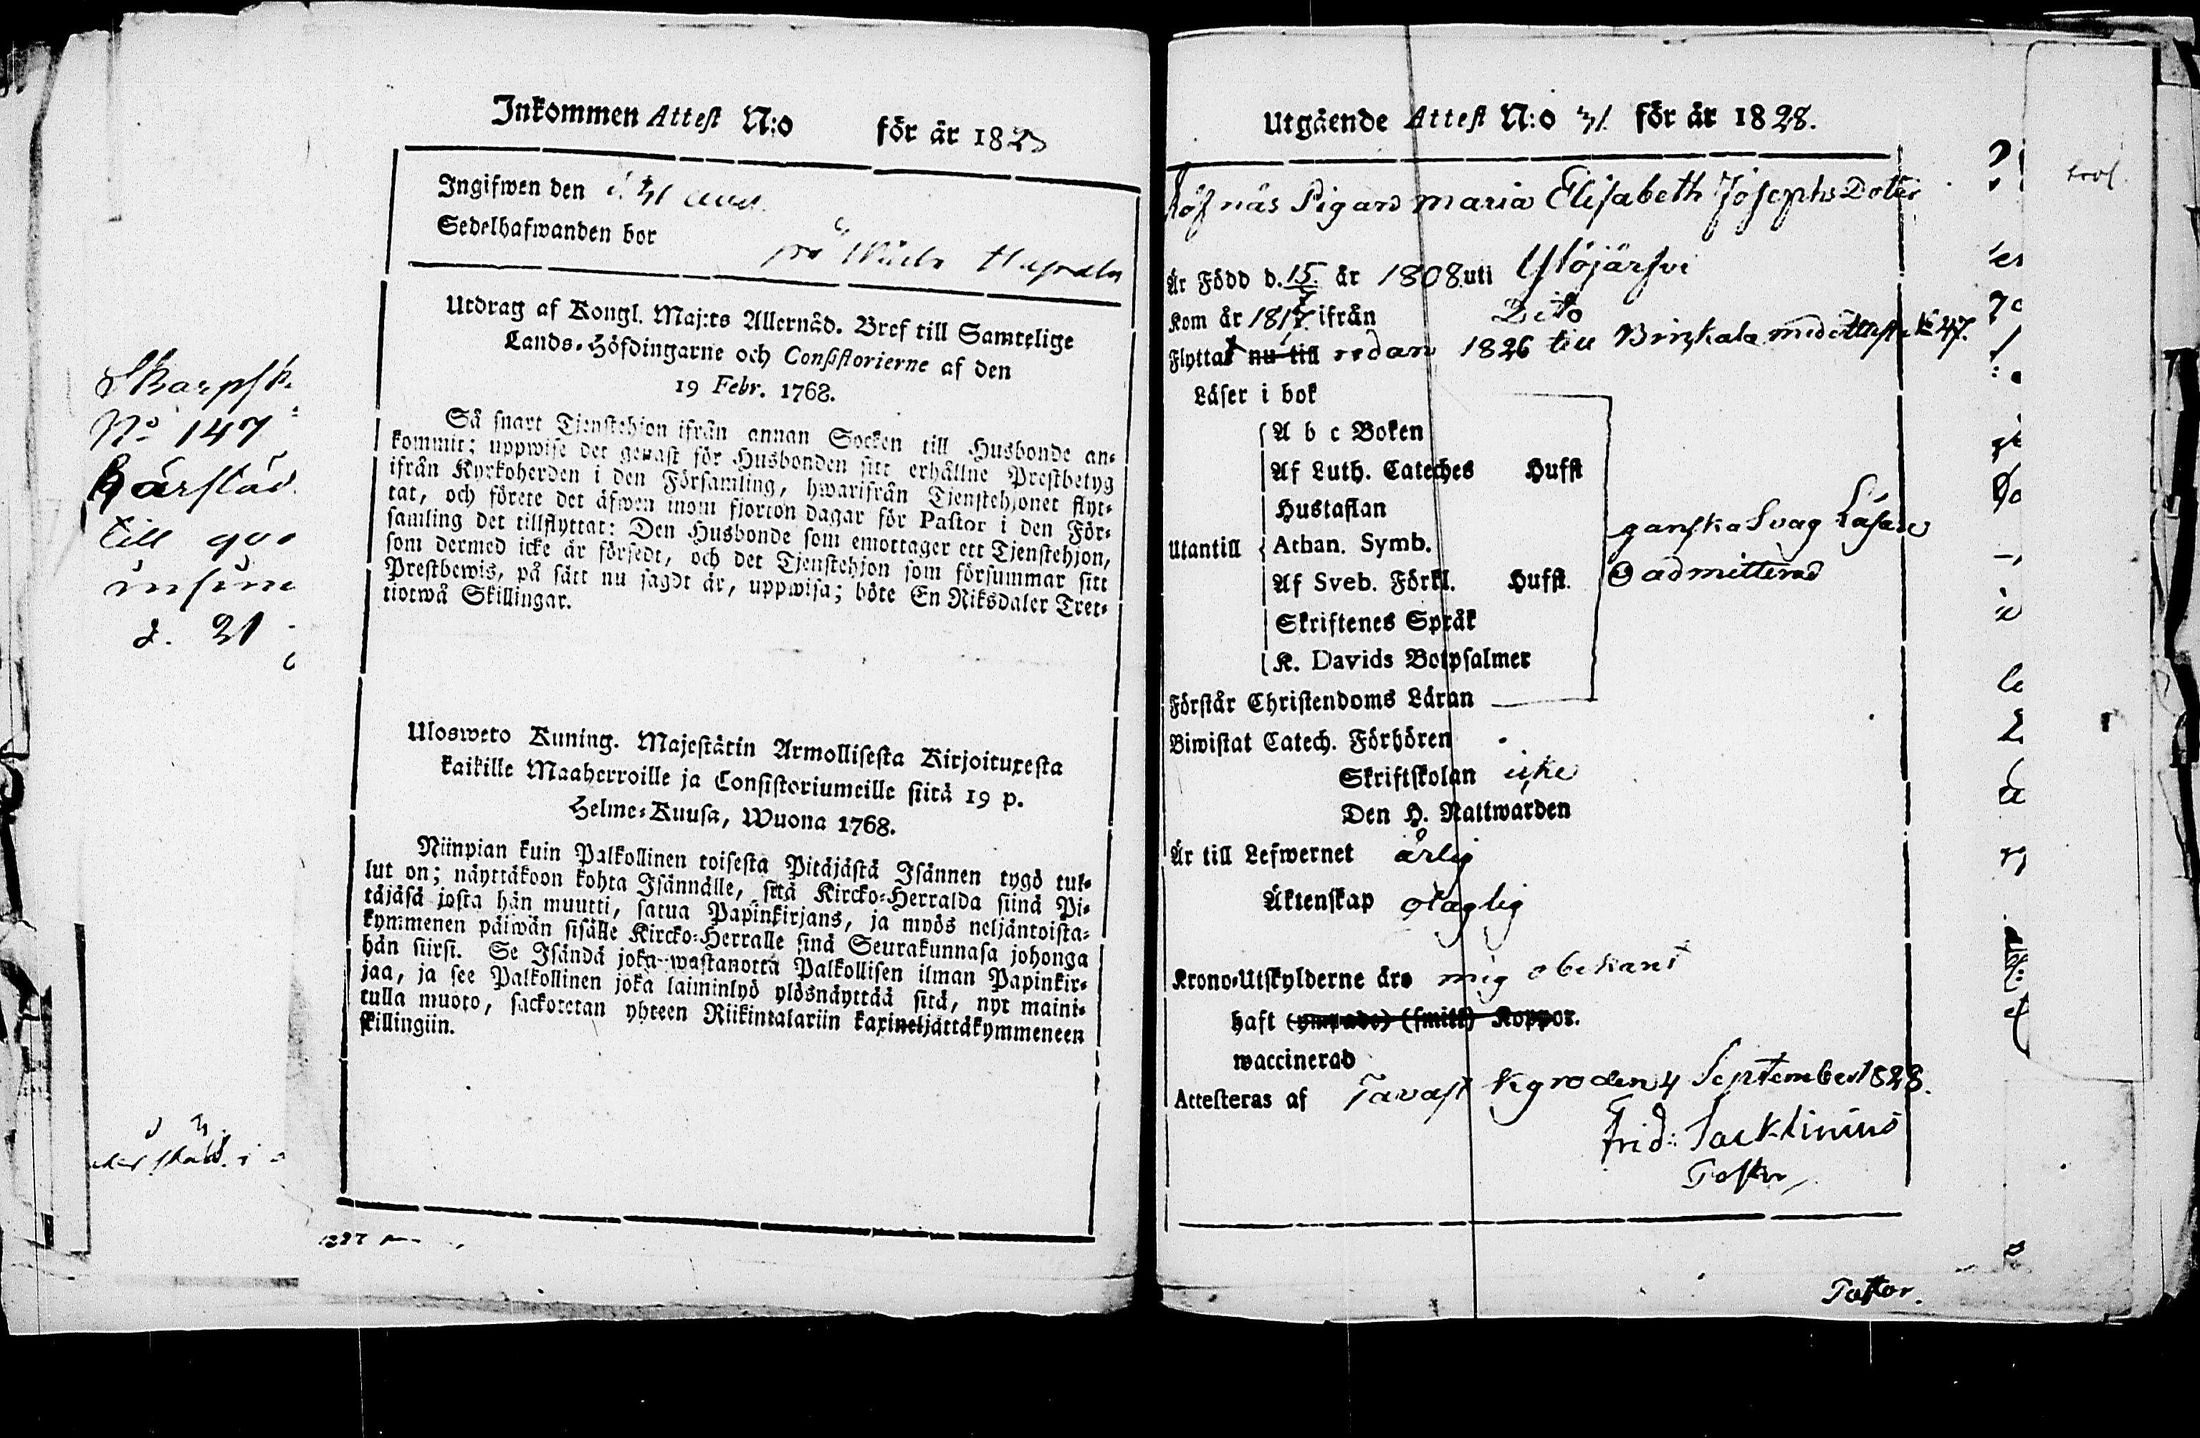 Skarpsk
No 147
Härstäd
till
d. 21
Inkommen Attest N:o för år 182
Ingifwen den
Sedelhafwanden bor
på
Utdrag af Kongl. Maj:ts Allernåd. Bref till Samtelige
Lands-Höfdingarne och Consistorierne af den
19 Febr. 1768.
Så snart Tjenstehjon ifrån annan Socken till Husbonde an-
kommit; uppwise det genast för Husbonden sitt erhållne Prestbetyg
ifrån Kyrkoherden i den Församling, hwarifrån Tjenstehjonet flyt-
tat, och förete det äfwen inom fjorton dagar för Pastor i den För-
samling det tillflyttat: Den Husbonde som emottager ett Tjenstehjon,
som dermed icke är försedt, och det Tjenstehjon som försummar sitt
Prestbewis, på sätt nu sagdt är, uppwisa; böte En Riksdaler Tret-
tiotwå Skillingar.
Ulosweto Kuning. Majestätin Armollisesta Kirjoituxesta
kaikille Maaherroille ja Consistoriumeille siitä 19 p.
Helme-Kuusa, Wuona 1768.
Niinpian kuin Palkollinen toisesta Pitäjästä Isännen tygö tul-
lut on; näyttäkoon kohta Isännälle, sitä Kircko-Herralda siinä Pi-
täjäsä josta hän muutti, satua Papinkirjans, ja myös neljäntoista-
kymmenen päiwän sisälle Kircko-Herralle sinä Seurakunnasa johonga
hän siirsi. Se Isändä joka wastanotta Palkollisen ilman Papinkir-
jaa, ja see Palkollinen joka laiminlyö ylösnäyttää sitä, nyt maini-
tulla muoto, sackotetan yhteen Riikintalariin kaxineljättäkymmeneen
skillingiin.
Utgående Attest N:o 31. för år 1828.
Pigan Maria Elisabeth Josephs Doter
Är Född d. 15 år 1808 uti Ylöjärfvi
Kom år 1817 ifrån Dito
Flyttat nu till redan 1826 till Brinkala med attest No 47.
Läser i bok
A b c Boken
Af Luth. Cateches Hufst
Hustaflan
Utantill Athan. Symb. ganska Svag Läsare
Af Sveb. Förkl. Hufst. Oadmitterad
Skriftenes Språk
K. Davids Botpsalmer
Förstår Christendoms Läran
Biwistat Catech. Förhören
Skriftskolan icke
Den H. Nattwarden
Är till Lefwernet ärlig
Äktenskap olaglig
Krono-Utskylderne äro mig obekant
haft (ympade) (smitt) Koppor.
waccinerad
Attesteras af Tavastkyro den 4 September 1828.
Frid: Sacklinius
Pastor
Pastor.